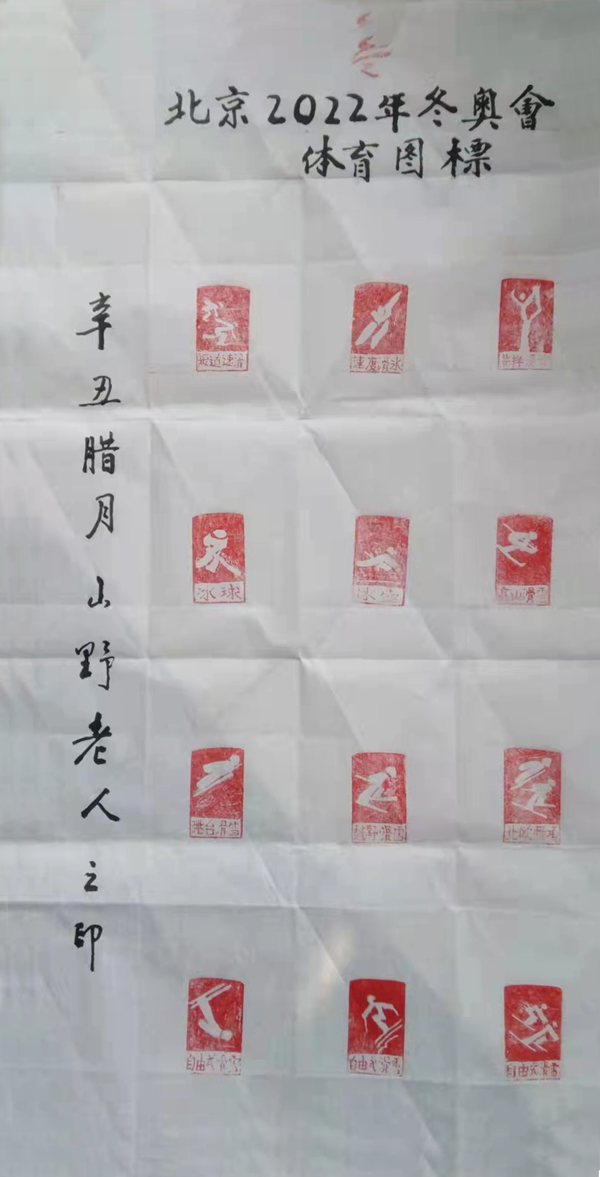 北京2022年冬奥會
体育图標
短道速滑
速度滑冰
花样滑冰
冰球
冰壶
高山滑雪
跳台滑雪
越野滑雪
北欧两项
自由式滑雪
自由式滑雪
自由式滑雪
辛丑腊月山野老人之印